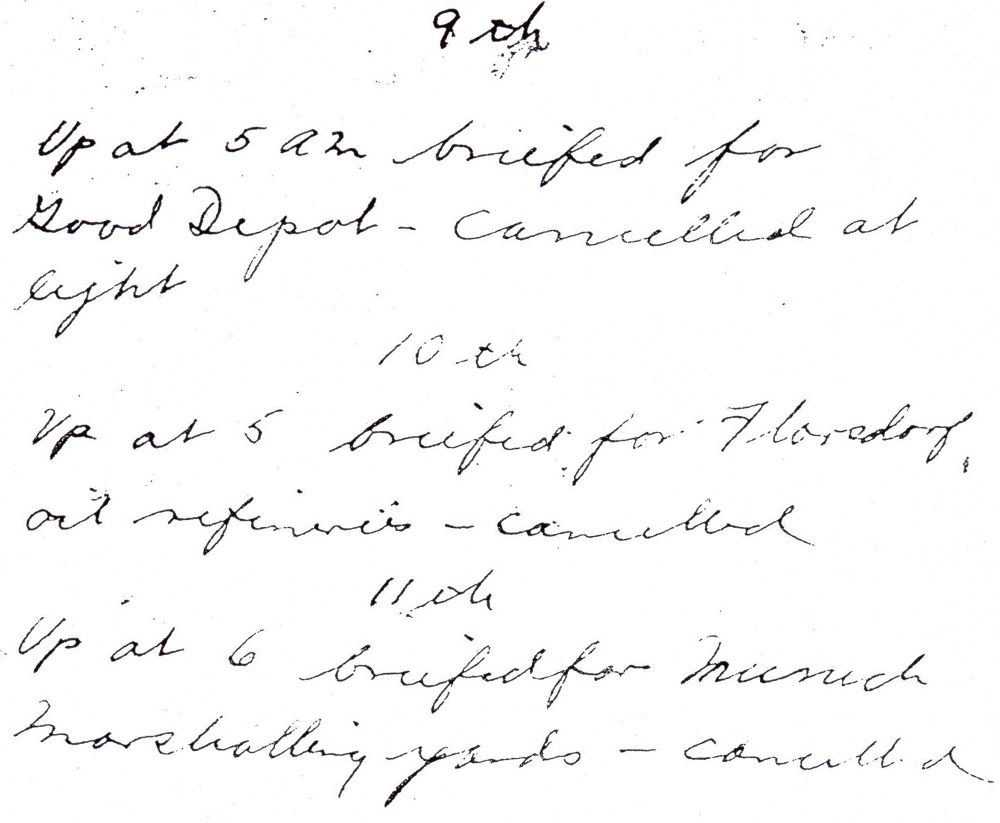 9th
Up at 5 am briefed for
Good Depot - cancelled at
light
10th
Up at 5 briefed for Florsdorf
oil refineries - cancelled
11th
Up at 6 briefed for Munich
Marshalling yards - cancelled